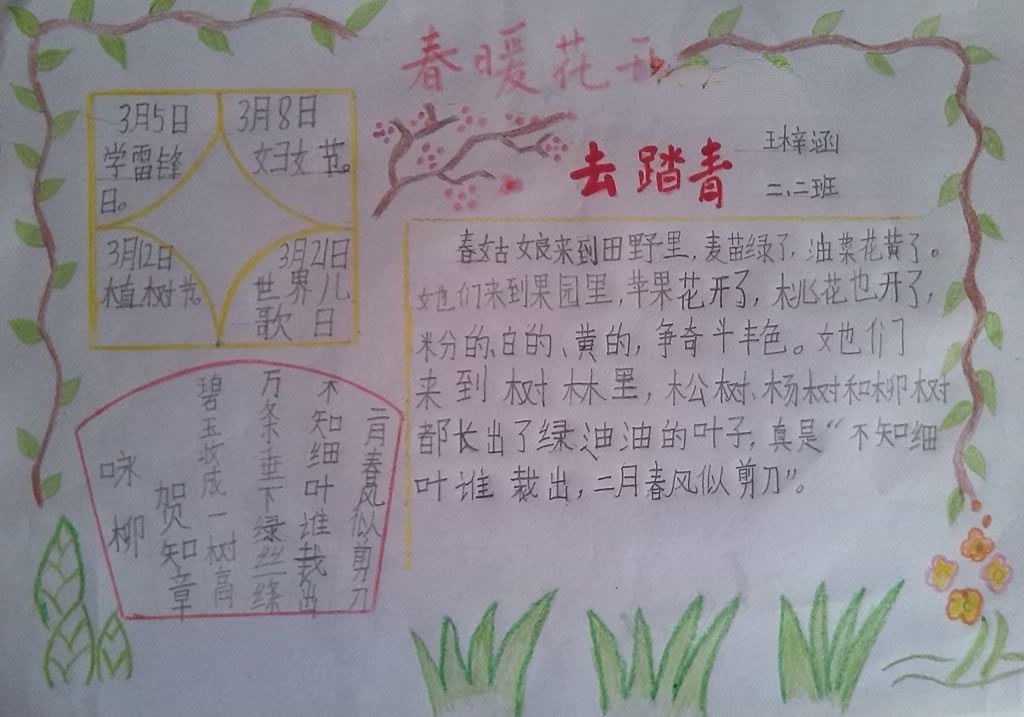 春暖花开
3月5日
学雷锋
日。
3月8日
妇女节。
3月12日
植树节。
3月21日
世界儿
歌日
去踏青
王梓涵
二、二班
春姑娘来到田野里,麦苗绿了,油菜花黄了。
她们来到果园里,苹果花开了,桃花也开了,
粉的、白的、黄的,争奇斗丰色。她们
来到树林里,松树、杨树和柳树
都长出了绿油油的叶子,真是“不知细
叶谁裁出,二月春风似剪刀”。
咏柳
贺知章
碧玉妆成一树高
万条垂下绿丝绦
不知细叶谁裁出
二月春风似剪刀